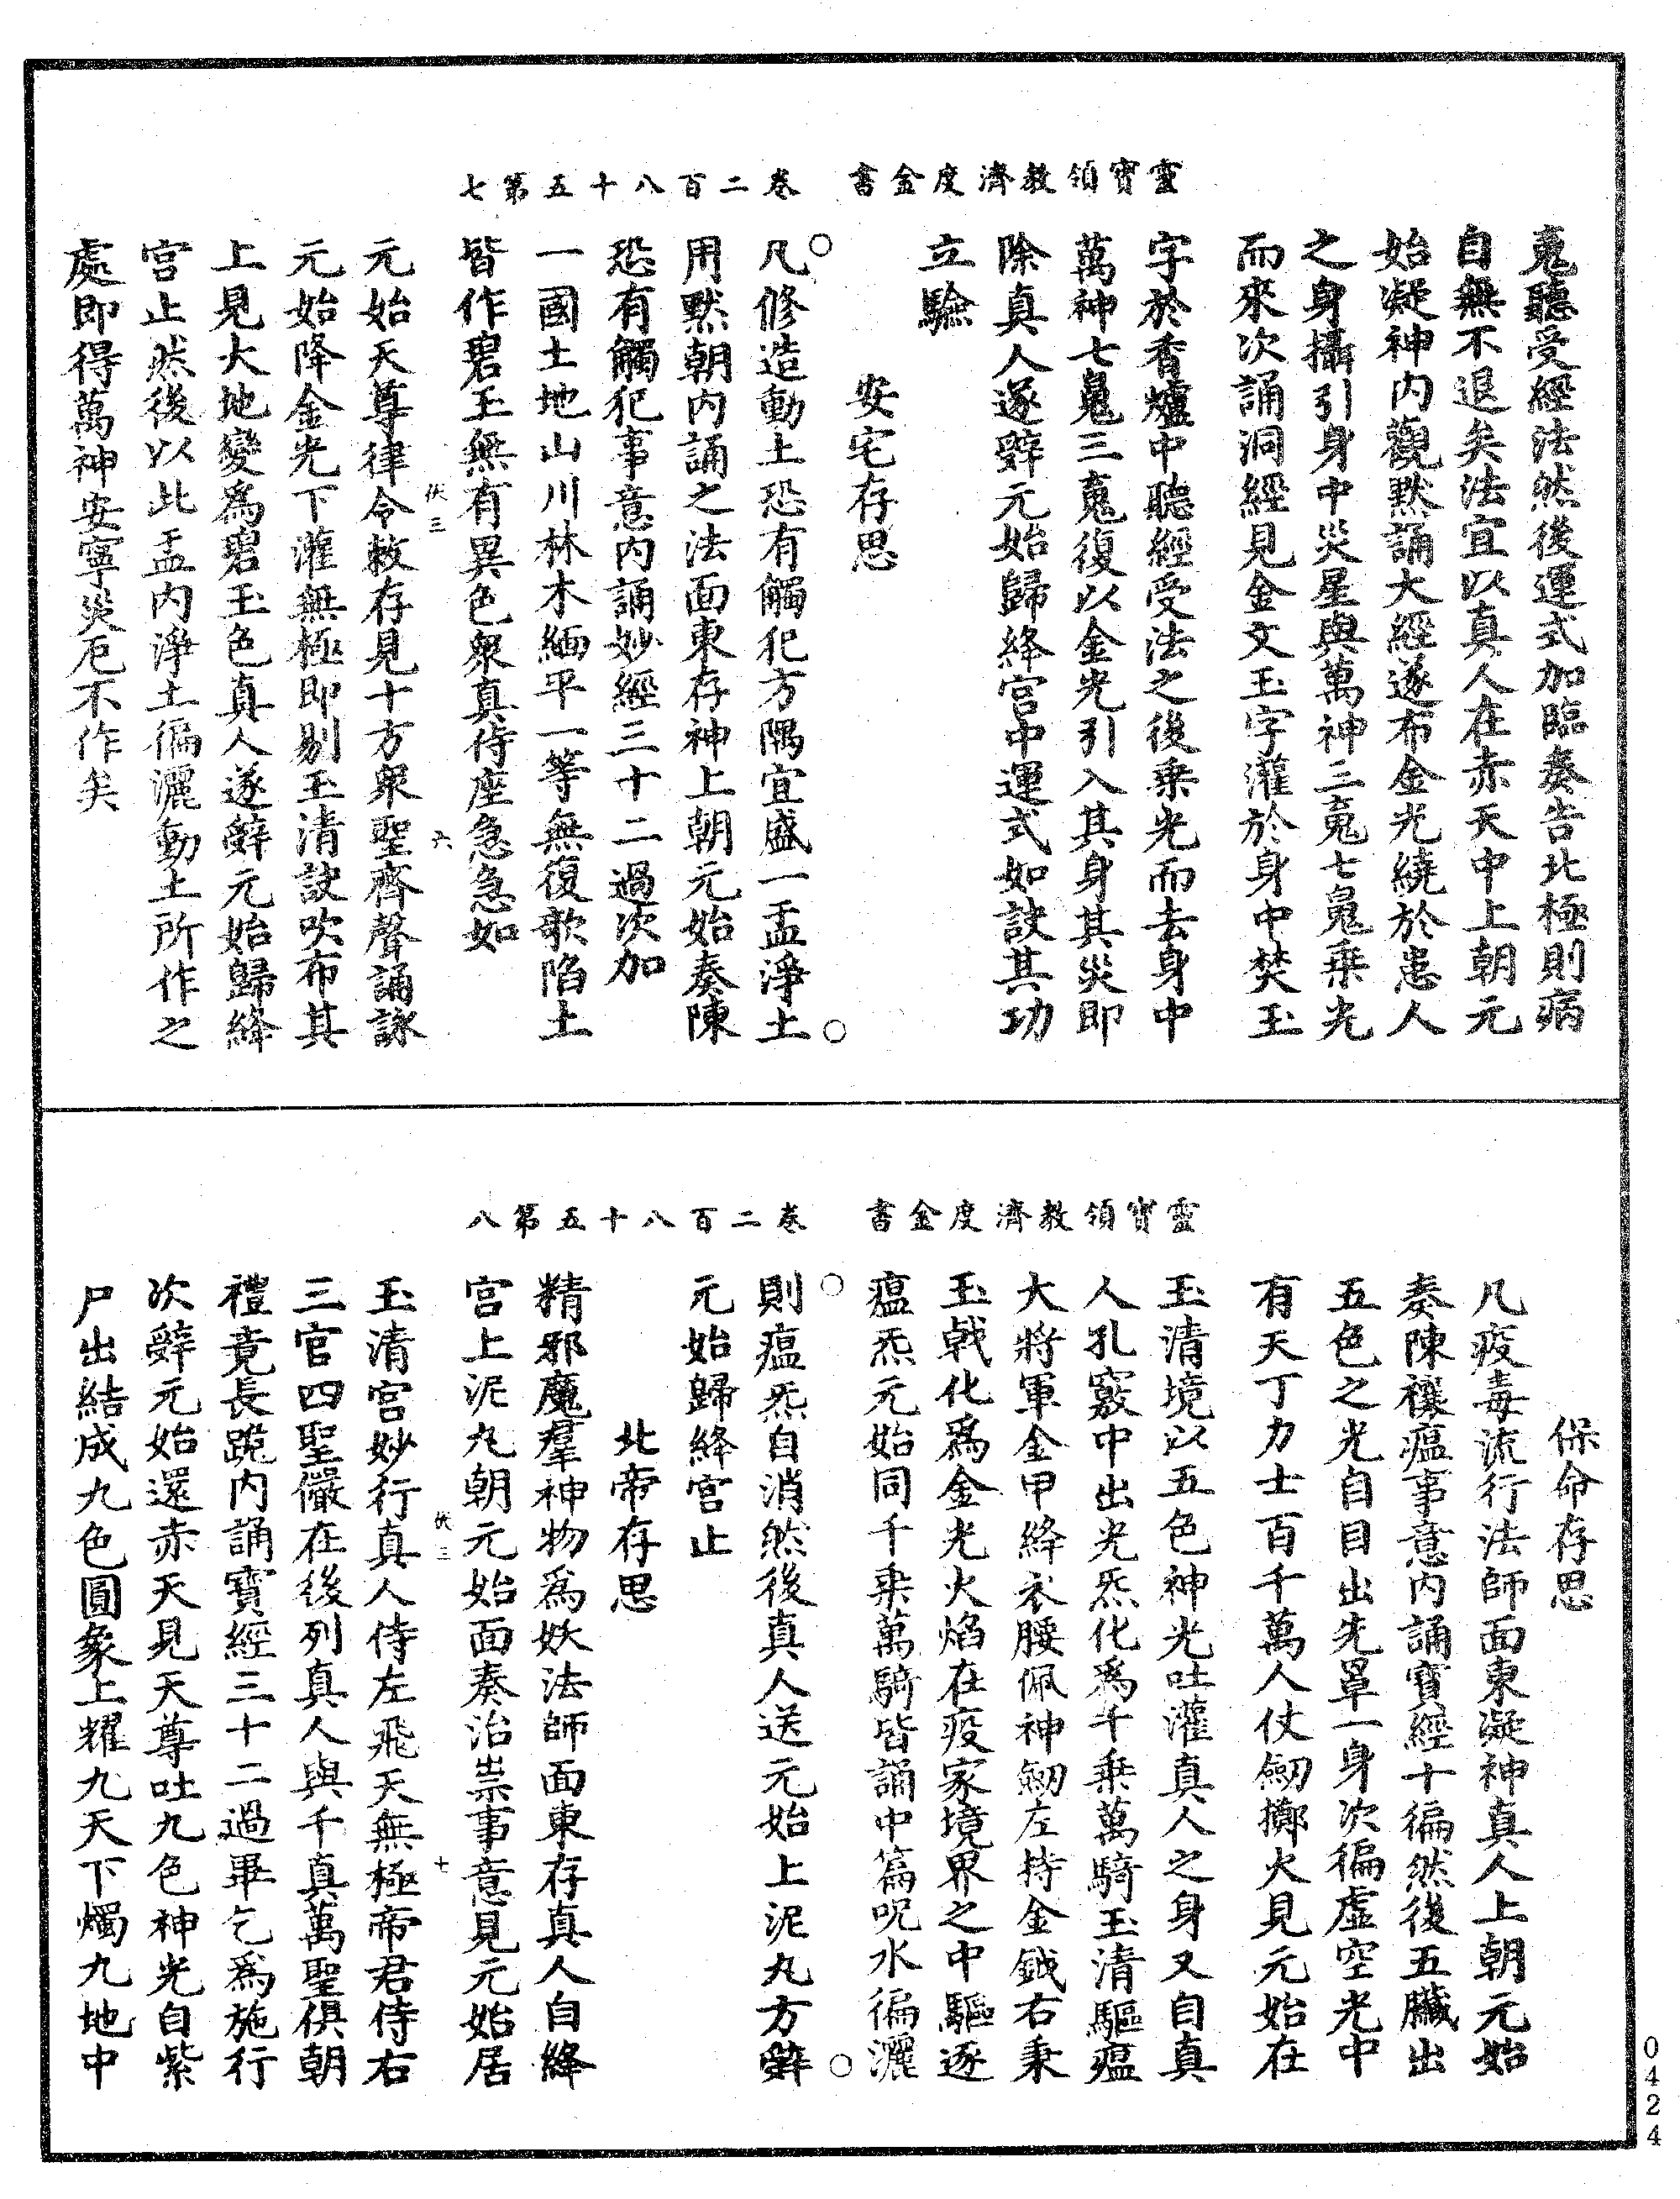 靈寶領教濟度金書　卷二百八十五第七
䰟聽受經法然後運式加臨奏告北極則病
自無不退矣法宜以真人在赤天中上朝元
始凝神内觀默誦大經遂布金光繞於患人
之身攝引身中災星與萬神三䰟七䰟乗光
而來次誦洞經見金文玉字灌於身中焚玉
字於香爐中聽經受法之後乗光而去身中
萬神七䰟三䰟復以金光引入其身其災即
除真人遂辭元始歸絳宫中運式如訣其功
立驗
安宅存思
凡修造動土恐有觸犯方隅宜盛一盂淨土
用默朝内誦之法面東存神上朝元始奏陳
恐有觸犯事意内誦妙經三十二過次加
一國土地山川林木緬平一等無復欹陷土
皆作碧玉無有異色衆真侍座急急如
元始天尊律令敕存見十方衆聖齊聲誦詠
元始降金光下灌無極即剔玉清訣吹布其
上見大地變爲碧玉色真人遂辭元始歸絳
宫止然後以此盂内淨土徧灑動土所作之
處即得萬神安寧災厄不作矣
伏三
六
靈寶領教濟度金書　卷二百八十五第八
保命存思
凡疫毒流行法師面東凝神真人上朝元始
奏陳禳瘟事意内誦寶經十徧然後五臟出
五色之光自目出先罩一身次徧虛空光中
有天丁力士百千萬人仗劒擲火見元始在
玉清境以五色神光吐灌真人之身又自真
人孔竅中出光炁化爲千乗萬騎玉清驅瘟
大將軍金甲絳衣腰佩神劒左持金鉞右秉
玉戟化爲金光火焰在疫家境界之中驅逐
瘟炁元始同千乗萬騎皆誦中篇呪水徧灑
則瘟炁自消然後真人送元始上泥丸方辭
元始歸絳宫止
北帝存思
精邪魔羣神物爲妖法師面東存真人自絳
宫上泥丸朝元始面奏治祟事意見元始居
玉清宫妙行真人侍左飛天無極帝君侍右
三官四聖儼在後列真人與千真萬聖俱朝
禮竟長跪内誦寶經三十二過畢乞爲施行
次辭元始還赤天見天尊吐九色神光自紫
戶出結成九色圓象上耀九天下燭九地中
伏三
十
0424